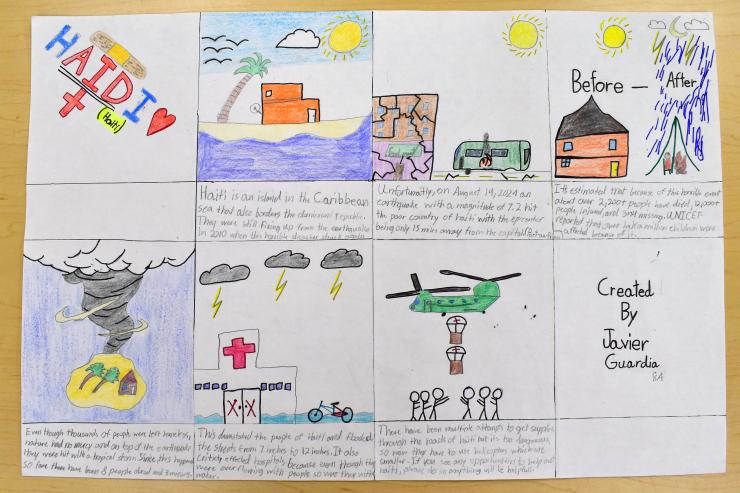 HAIDI
(Haiti)
Before – After
Haiti is an island in the Caribbean
sea that also borders the dominican republic.
They were still fixing up from the earthquake
in 2010 when this horrible disaster struck again.
Unfortunatly, on August 14, 2021 an
earthquake with a magnitude of 7.2 hit
the poor country of haiti with the epicenter
being only 15 miles away from the capital
Its estimated that because of this horrible event
about over 2,200 people have died, 12,000
people injured, and 344 missing. UNICEF
reported that over half a million children were
affected because of it.
Even though thousands of people were left homeless,
nature had no mercy and on top of the earthquake
they were hit with a tropical storm. Since this happened
so fare there have been 8 people dead and 3 missing.
This devastated the people of Haiti and flooded
the streets from 7 inches to 12 inches. It also
criticly effected hospitals because even though they
were over flowing with people so were they with
water.
There have been multiple attempts to get supplies
through the roads of haiti but its too dangerous,
so now they have to use helicopters which are
smaller. If you see any opportunities to help out
haiti, please do so anything will be helpfull.
Created
By
Javier
Guardia
8A